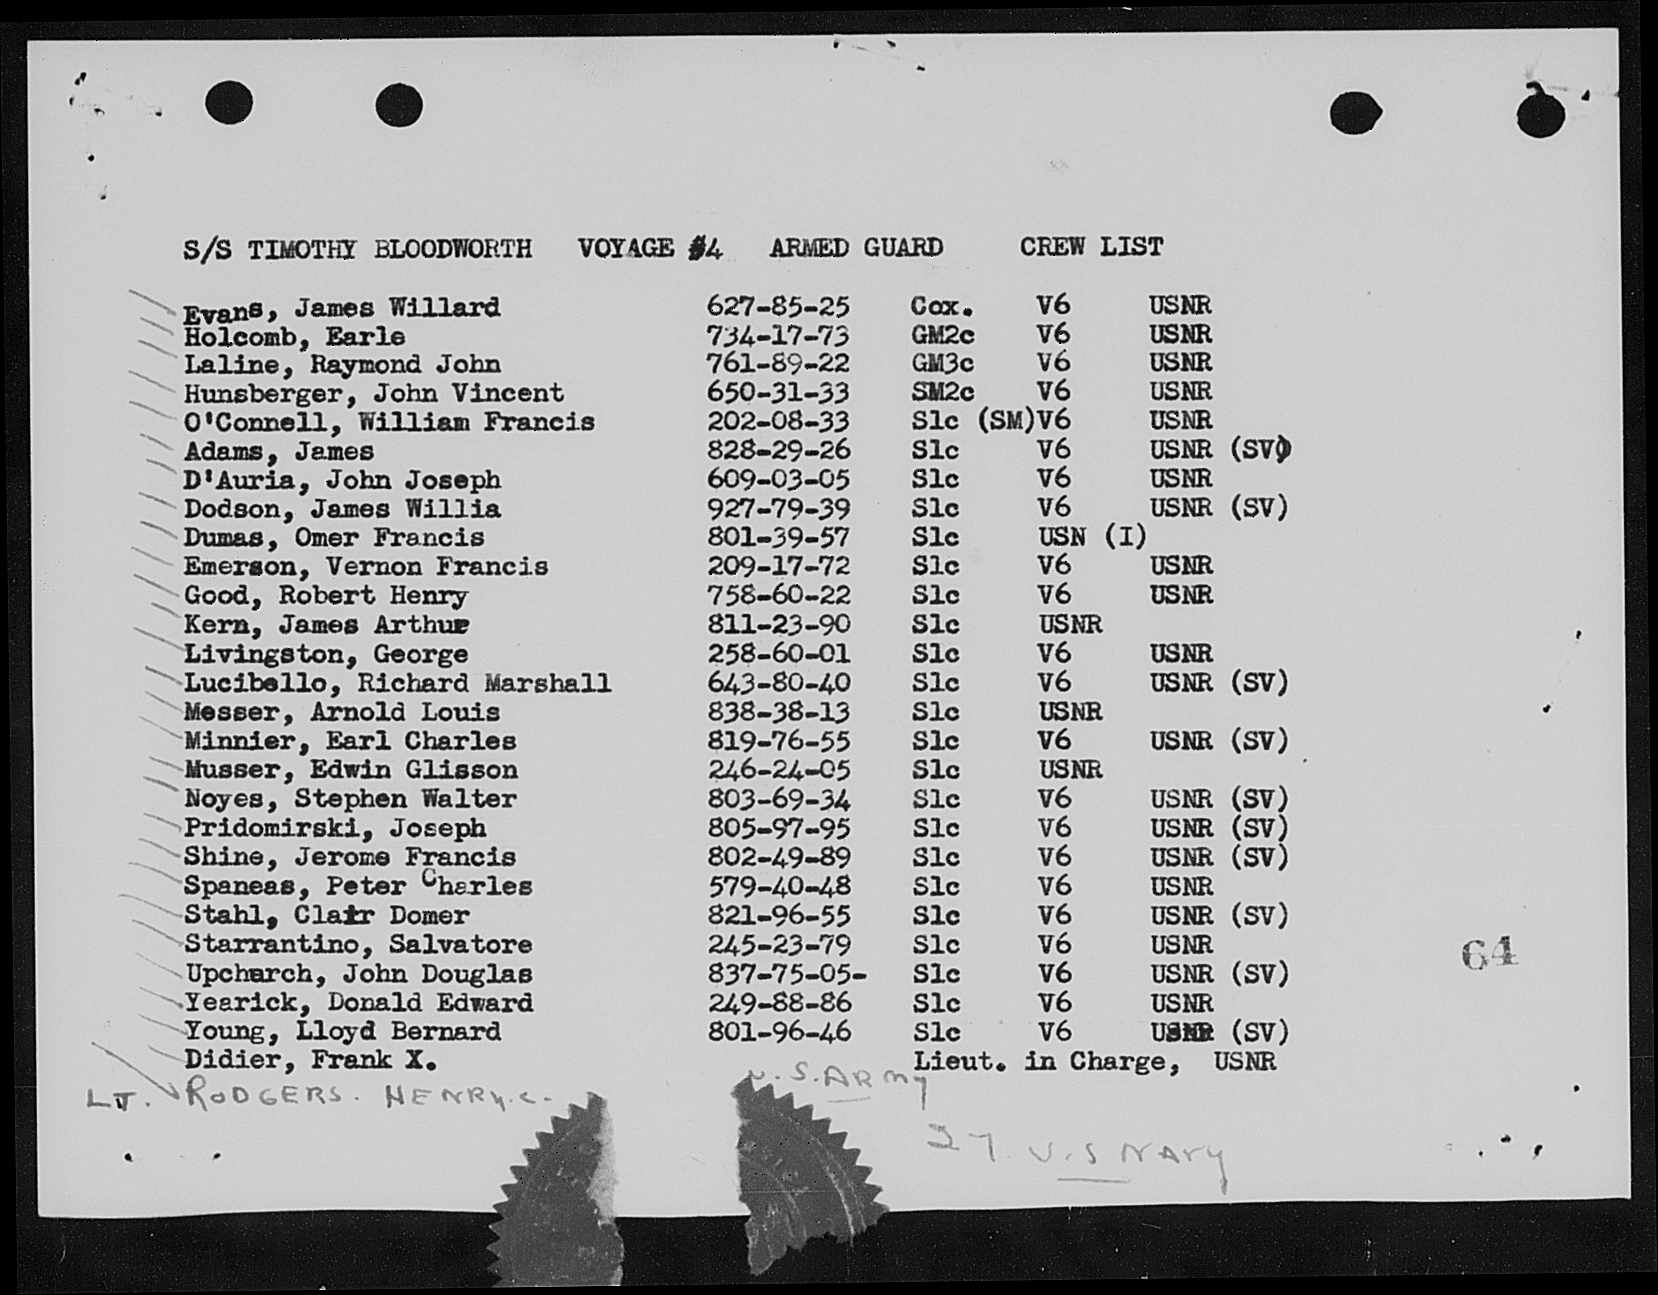 S/S TIMOTHY BLOODWORTH VOYAGE #4 ARMED GUARD CREW LIST
Evans, James Willard 627-85-25 Cox. V6 USNR
Holcomb, Earle 734-17-73 GM2c V6 USNR
Laline, Raymond John 761-89-22 GM3c V6 USNR
Hunsberger, John Vincent 650-31-33 SM2c V6 USNR
O'Connell, William Francis 202-08-33 S1c (SM)V6 USNR
Adams, James 828-29-26 S1c V6 USNR (SV)
D'Auria, John Joseph 609-03-05 S1c V6 USNR
Dodson, James Willia 927-79-39 S1c V6 USNR (SV)
Dumas, Omer Francis 801-39-57 S1c USN (I)
Emerson, Vernon Francis 209-17-72 S1c V6 USNR
Good, Robert Henry 758-60-22 S1c V6 USNR
Kern, James Arthur 811-23-90 S1c USNR
Livingston, George 258-60-01 S1c V6 USNR
Lucibello, Richard Marshall 643-80-40 S1c V6 USNR (SV)
Messer, Arnold Louis 838-38-13 S1c USNR
Minnier, Earl Charles 819-76-55 S1c V6 USNR (SV)
Musser, Edwin Glisson 246-24-05 S1c USNR
Noyes, Stephen Walter 803-69-34 S1c V6 USNR (SV)
Pridomirski, Joseph 805-97-95 S1c V6 USNR (SV)
Shine, Jerome Francis 802-49-89 S1c V6 USNR (SV)
Spaneas, Peter Charles 579-40-48 S1c V6 USNR
Stahl, Clair Domer 821-96-55 S1c V6 USNR (SV)
Starrantino, Salvatore 245-23-79 S1c V6 USNR
Upchurch, John Douglas 837-75-05- S1c V6 USNR (SV)
Yearick, Donald Edward 249-88-86 S1c V6 USNR
Young, Lloyd Bernard 801-96-46 S1c V6 USNR (SV)
Didier, Frank X. Lieut. in Charge, USNR
LT. RODGERS. HENRY.C. U.S. ARMY
27 U.S NAVY
64